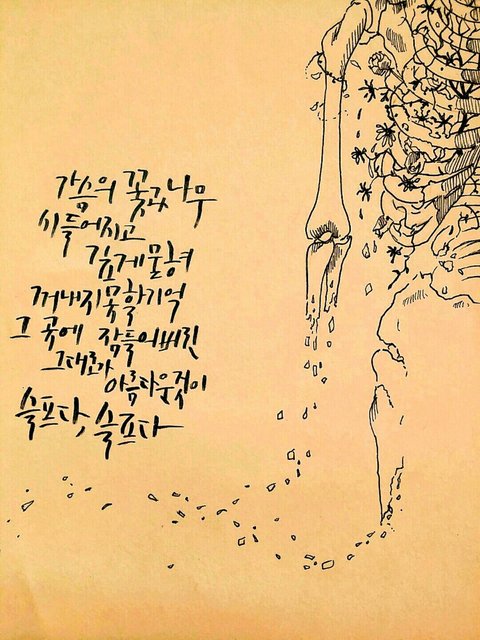 가슴의 꽃과 나무
시들어지고
깊게 묻혀
꺼내지 못할 기억
그 곳에 잠들어버린
그대로가
아름다운 것이
슬프다, 슬프다